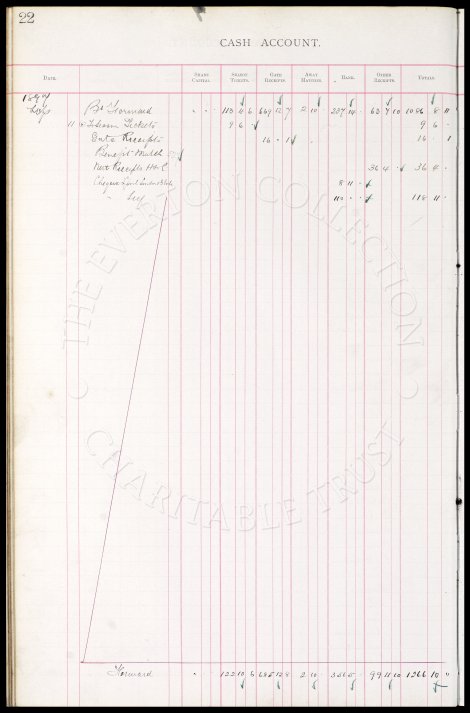 22
CASH ACCOUNT.
DATE. SHARE CAPITAL. SEASON TICKETS. GATE RECEIPTS. AWAY MATCHES. BANK. OTHER RECEIPTS. TOTALS.
1894
Bt Forward 113 4 6 669 12 7 2 10 237 14 63 7 10 1086 8 11
11 Season Tickets 9 6 9 6
Gate Receipts 16 1 16 1
Benefit Match
Net Receipts 36 4 36 4
8 11
110 118 11
Forward 122 10 6 685 12 8 2 10 356 5 99 11 10 1266 10
THE EVERTON COLLECTION
CHARITABLE TRUST